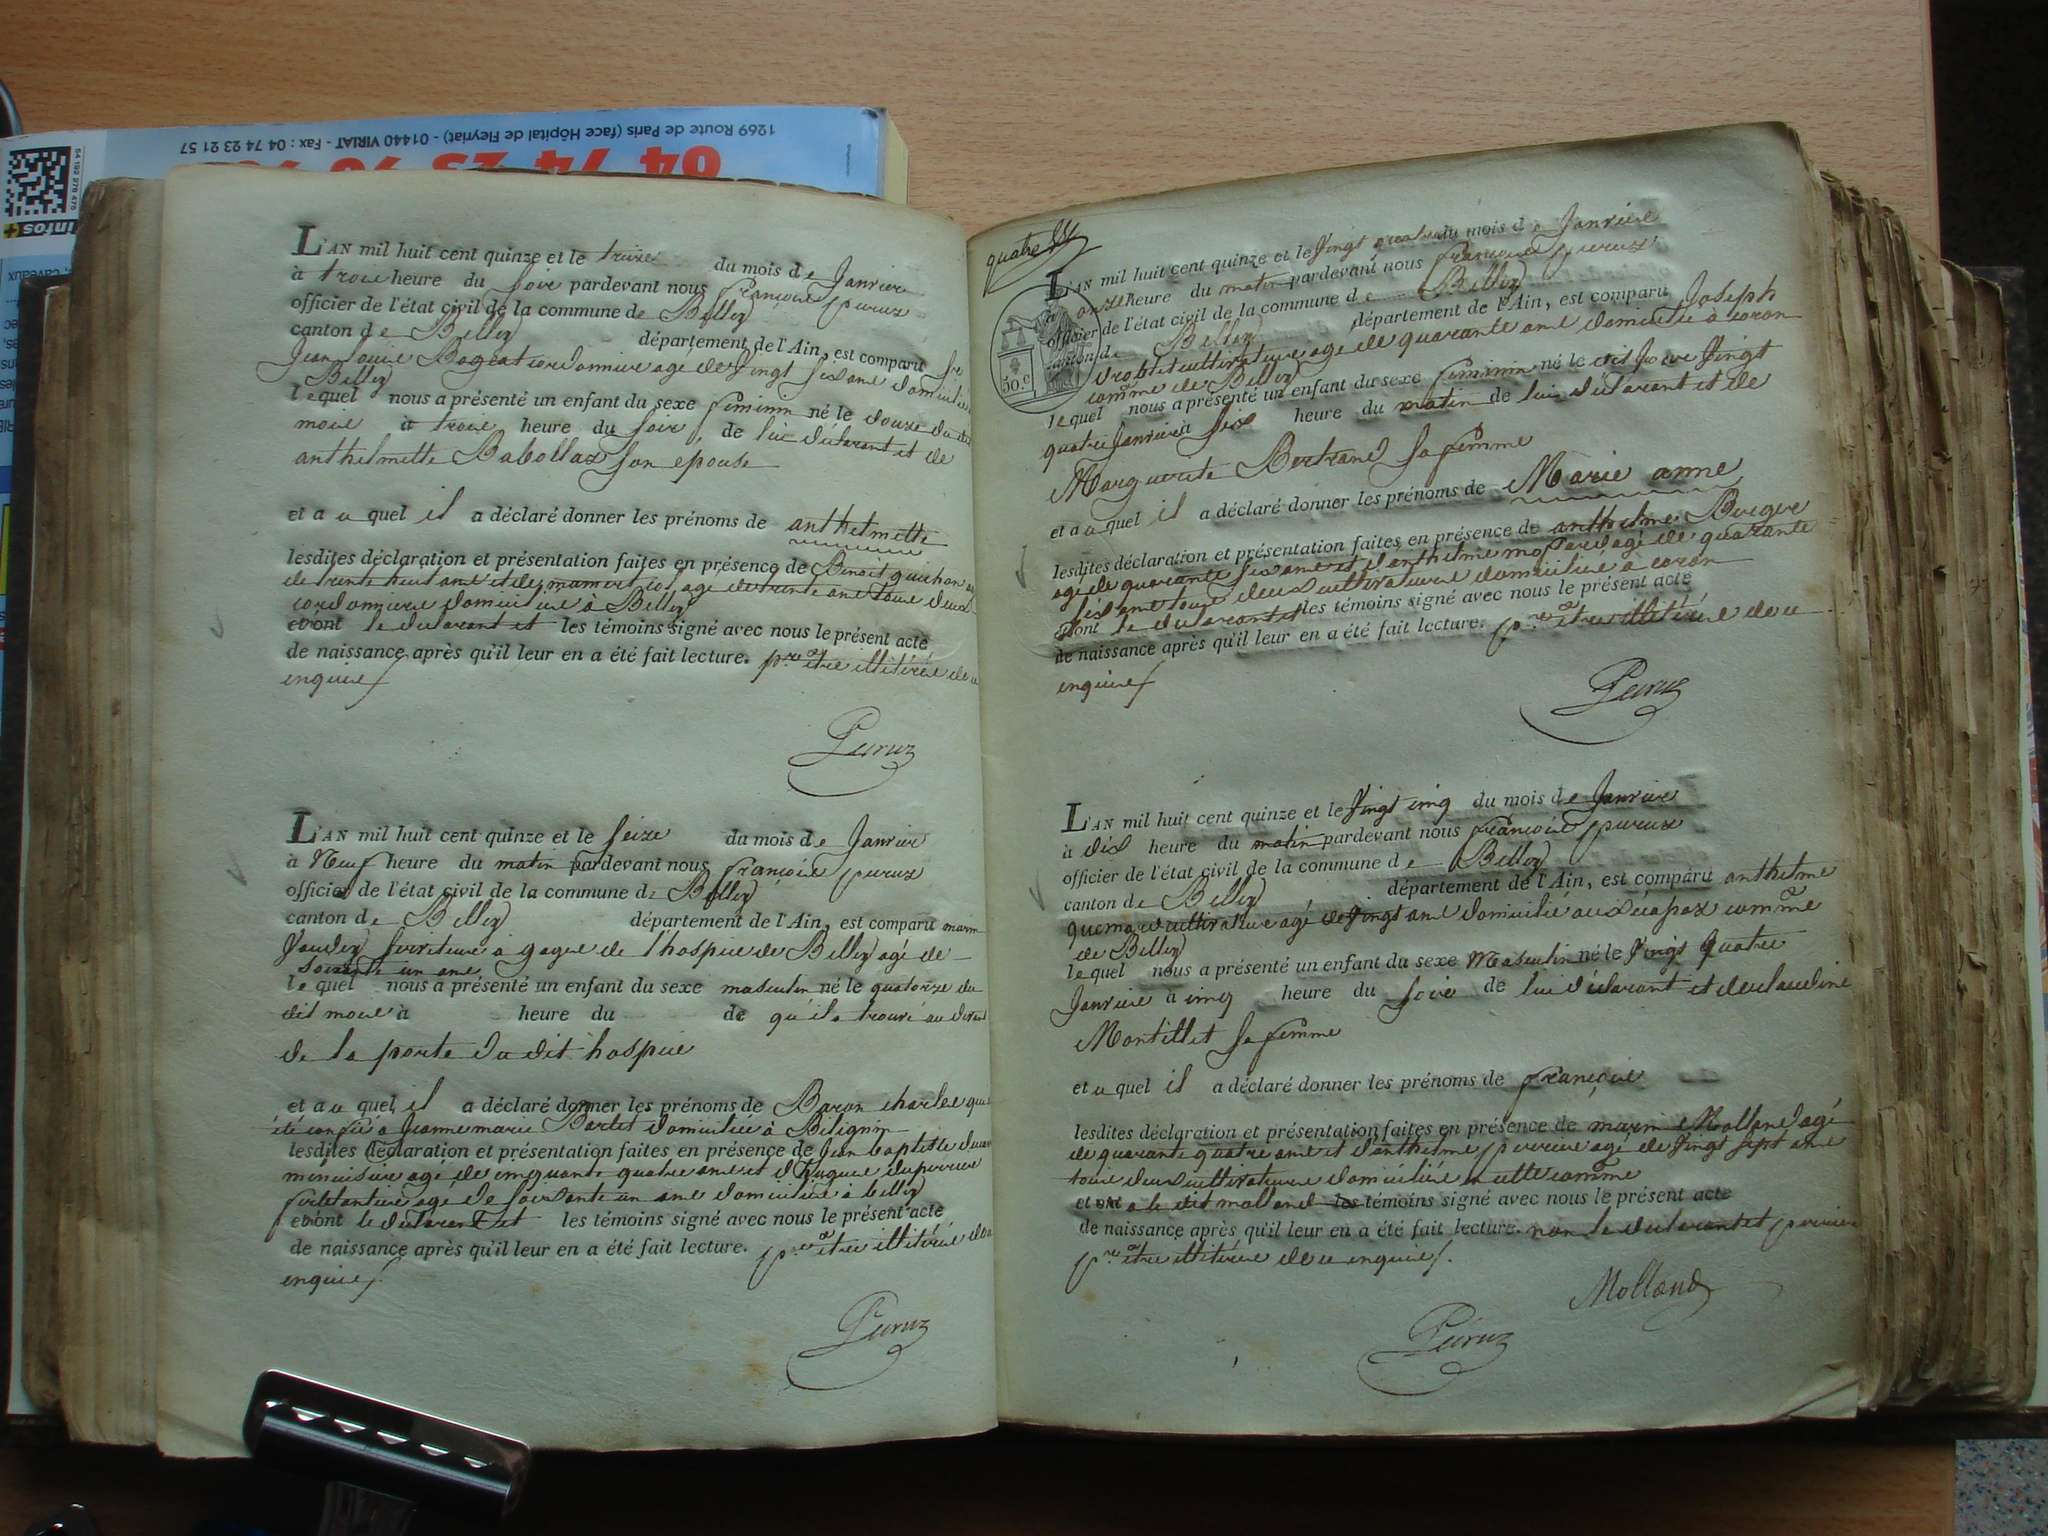 1269 Route de Paris (face Hôpital de Fleyriat) - 01440 VIRIAT - Fax : 04 74 23 21 57
04 74 23
infos+
L'AN mil huit cent quinze et le treize du mois de Janvier
à trois heure du soir pardevant nous françois peruz
officier de l'état civil de la commune de Belley
canton de Belley département de l'Ain, est comparu
Jean Louis Bageat cordonnier agé de vingt six ans domicilié
Belley
lequel nous a présenté un enfant du sexe feminin né le douze du dit
mois à trois heure du soir, de lui déclarant et de
anthelmette Babollax son epouse
et a u quel il a déclaré donner les prénoms de anthelmette
lesdites déclaration et présentation faites en présence de Benoit guichon
de trente huit ans et de mamert agé de trente ans tous deux
cordonniers domiciliés à Belley
et ont le déclarant et les témoins signé avec nous le présent acte
de naissance après qu'il leur en a été fait lecture. pre être illitérés de ce
enquis
Peruz
L'AN mil huit cent quinze et le seize du mois de Janvier
à Neuf heure du matin pardevant nous françois peruz
officier de l'état civil de la commune de Belley
canton de Belley département de l'Ain, est comparu
serviteur à gages de l'hospice de Belley agé de
soixante un ans
lequel nous a présenté un enfant du sexe masculin né le quatorze du
dit mois à heure du de qu'il a trouvé au devant
de la porte du dit hospice
et a u quel il a déclaré donner les prénoms de Baron charles qui
été confié à Jeanne marie Bartet domiciliée à Bilignin
lesdites déclaration et présentation faites en présence de Jean baptiste
menuisier agé de cinquante quatre ans et d'hugues duperrier
agé de soixante un ans domiciliés à belley
et ont le déclarant et les témoins signé avec nous le présent acte
de naissance après qu'il leur en a été fait lecture. pre être illitérés de ce
enquis
Peruz
quatre
50.c
L'AN mil huit cent quinze et le vingt quatre du mois de Janvier
à onze heure du matin pardevant nous françois peruz
officier de l'état civil de la commune de Belley
canton de Belley département de l'Ain, est comparu Joseph
cultivateur agé de quarante ans domicilié à coron
comme de Belley
lequel nous a présenté un enfant du sexe feminin né le dit jour vingt
quatre Janvier à six heure du matin de lui déclarant et de
Marguerite Bertrand sa femme
et a u quel il a déclaré donner les prénoms de Marie anne
lesdites déclaration et présentation faites en présence de anthelme Berger
agé de quarante six ans et d'anthelme agé de quarante
six ans tous deux cultivateurs domiciliés à coron
et ont le déclarant et les témoins signé avec nous le présent acte
de naissance après qu'il leur en a été fait lecture. pre être illitérés de ce
enquis
Peruz
L'AN mil huit cent quinze et le vingt cinq du mois de Janvier
à dix heure du matin pardevant nous françois peruz
officier de l'état civil de la commune de Belley
canton de Belley département de l'Ain, est comparu anthelme
cultivateur agé de vingt ans domicilié aux comme
de Belley
lequel nous a présenté un enfant du sexe Masculin né le vingt quatre
Janvier à cinq heure du soir de lui déclarant et de claudine
Montillet sa femme
et a u quel il a déclaré donner les prénoms de françois
lesdites déclaration et présentation faites en présence de marin Molland agé
de quarante quatre ans et d'anthelme perrier agé de vingt sept ans
tous deux cultivateurs domiciliés en cette comme
et ont a le dit molland les témoins signé avec nous le présent acte
de naissance après qu'il leur en a été fait lecture. non le déclarant et perrier
pr être illitérés de ce enquis.
Molland
Peruz